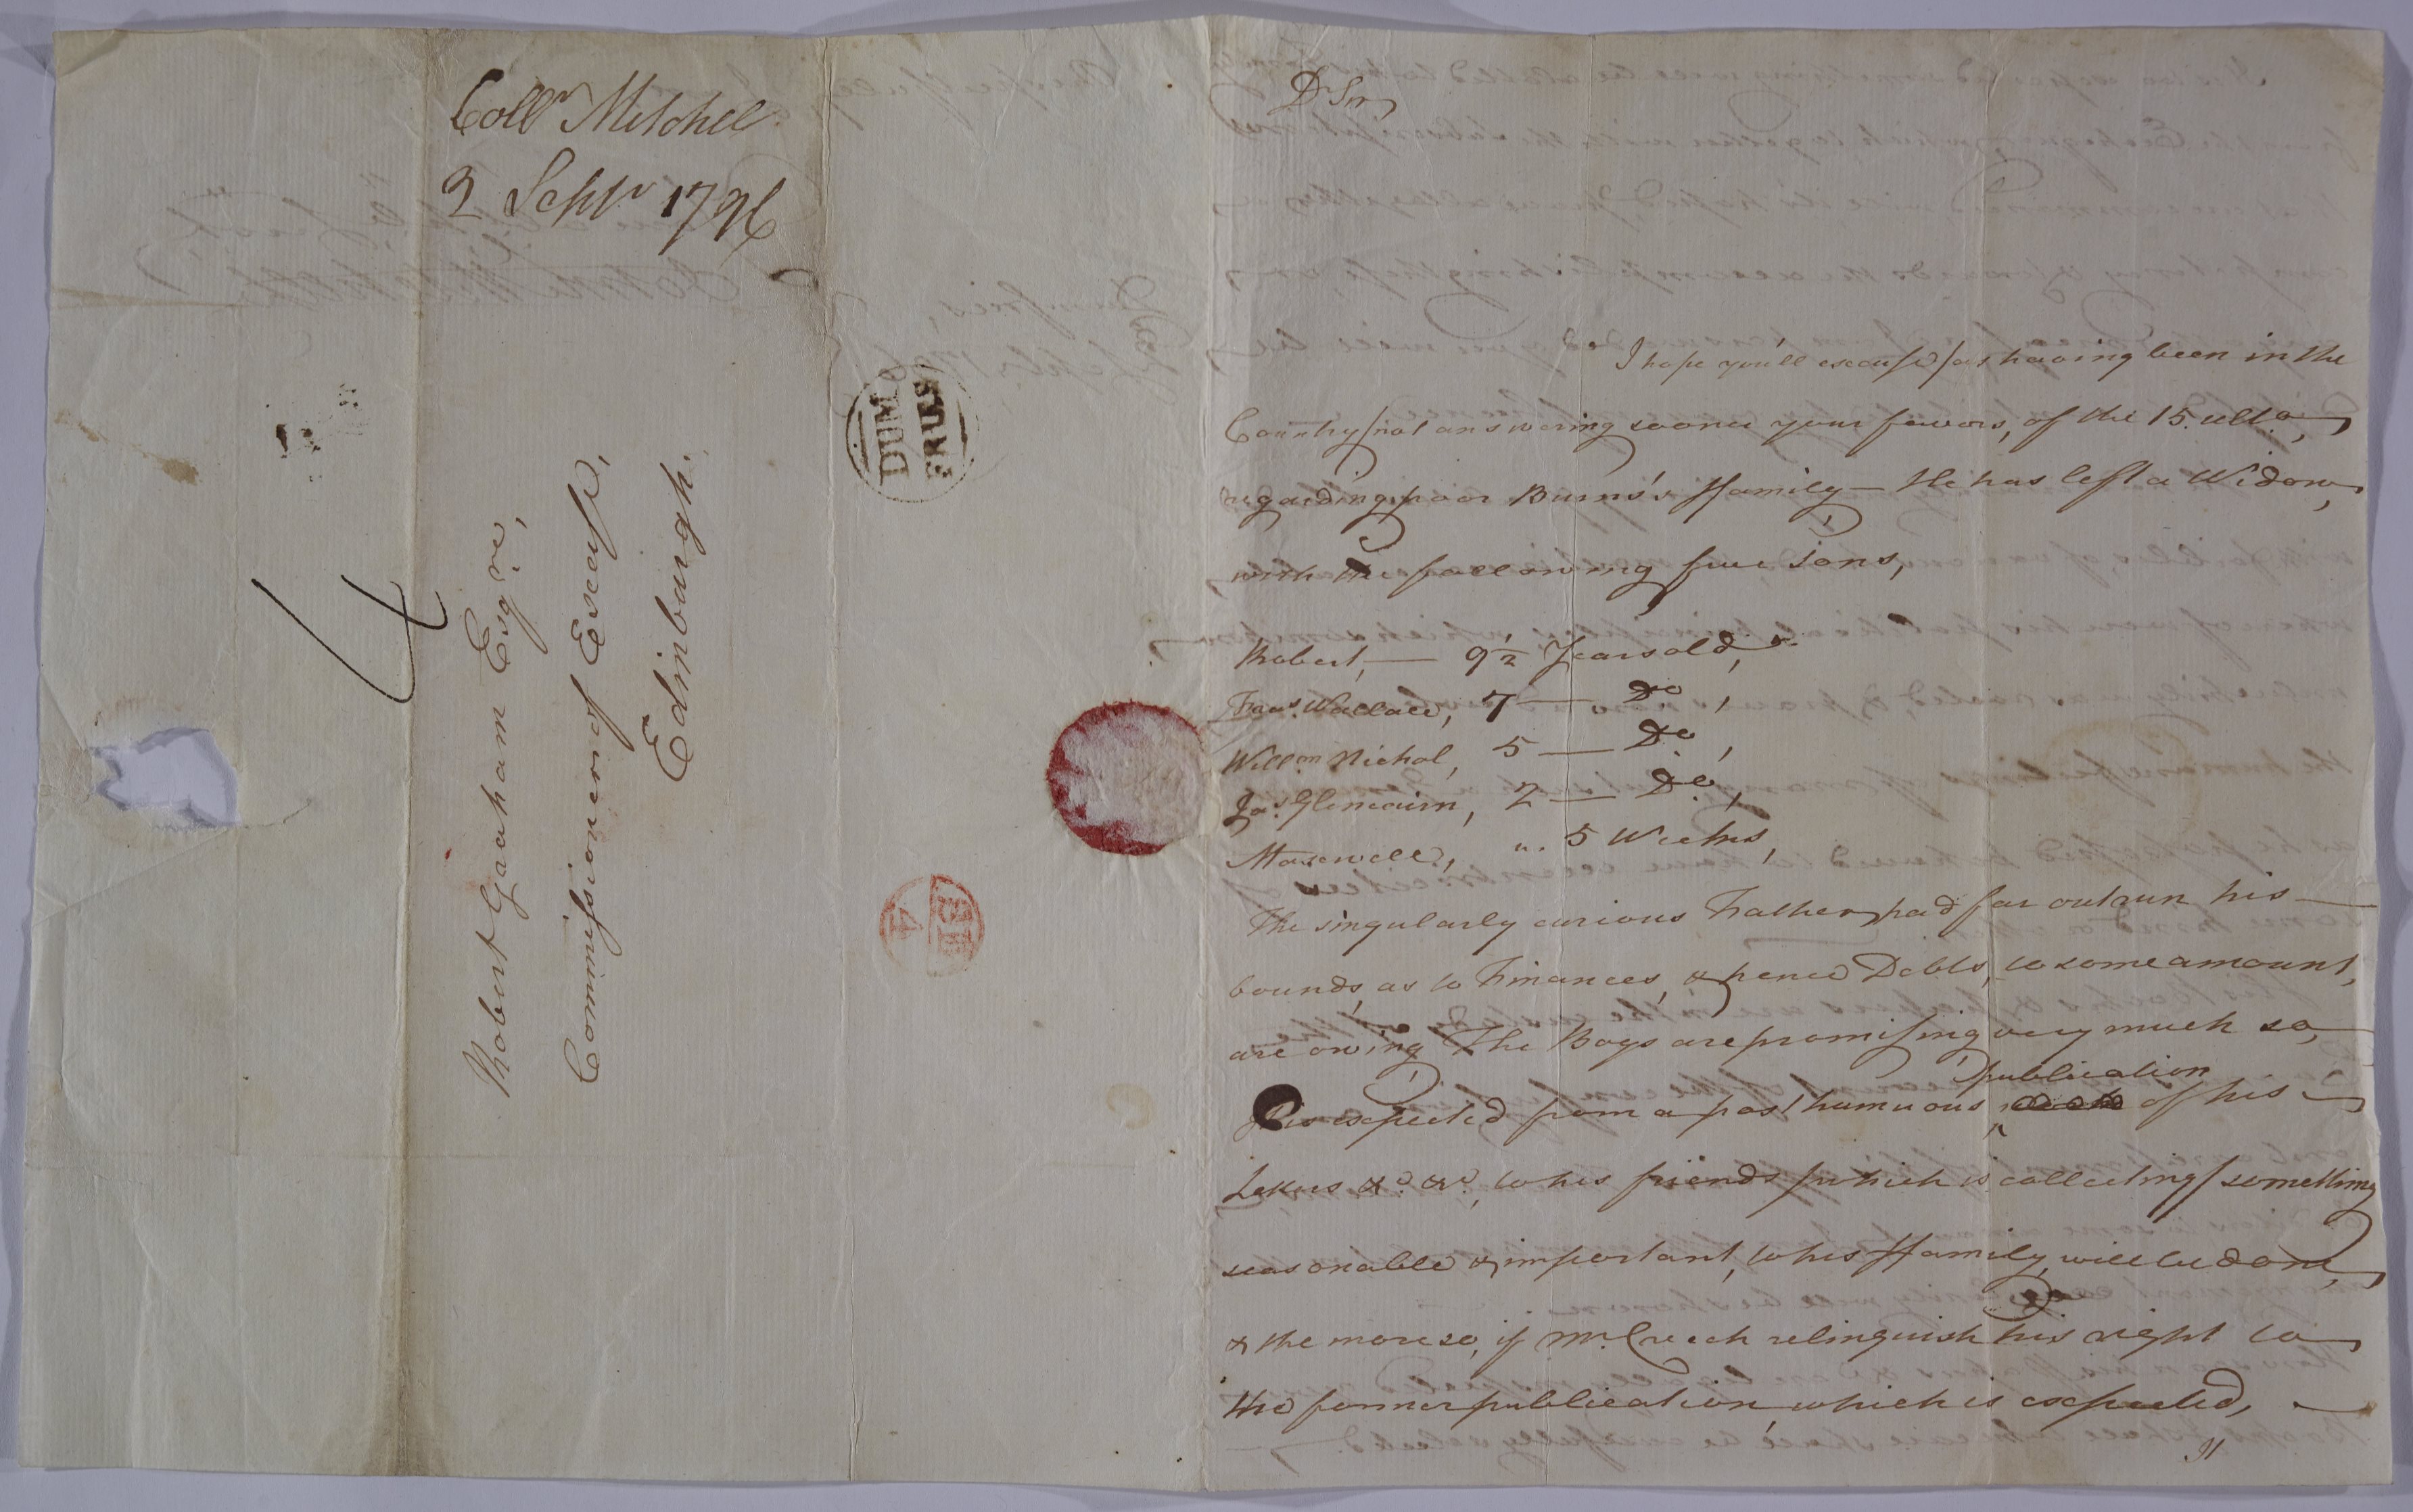 Collr Mitchel
2 Septr 1796
Robert Graham Esqre,
Commissioner of Excise,
Edinburgh.
4
DUM
FRIES
Dr Sir,
I hope you'll excuse/as having been in the
Country/not answering sooner your favors, of the 15. ulto,
regarding poor Burns's Family — He has left a Widow,
with the following five sons,
Robert, — 9½ Years old,
Frans. Wallace, 7 — Do,
Willm Nichol, 5 — Do,
Jas. Glencairn, 2 — Do,
Maxwell, ". 5 Weeks,
The singularly curious Father, had far outrun his —
bounds, as to Finances, & hence Debts, to some amount,
are owing The Boys are promising, very much so,
It is expected from a posthumuous publication of his
Letters &c. &c, to his friends/which is collecting/something
seasonable & important, to his Family, will be done,
& the more so, if Mr. Creech relinquish his right to
the former publication, which is expected, —
It